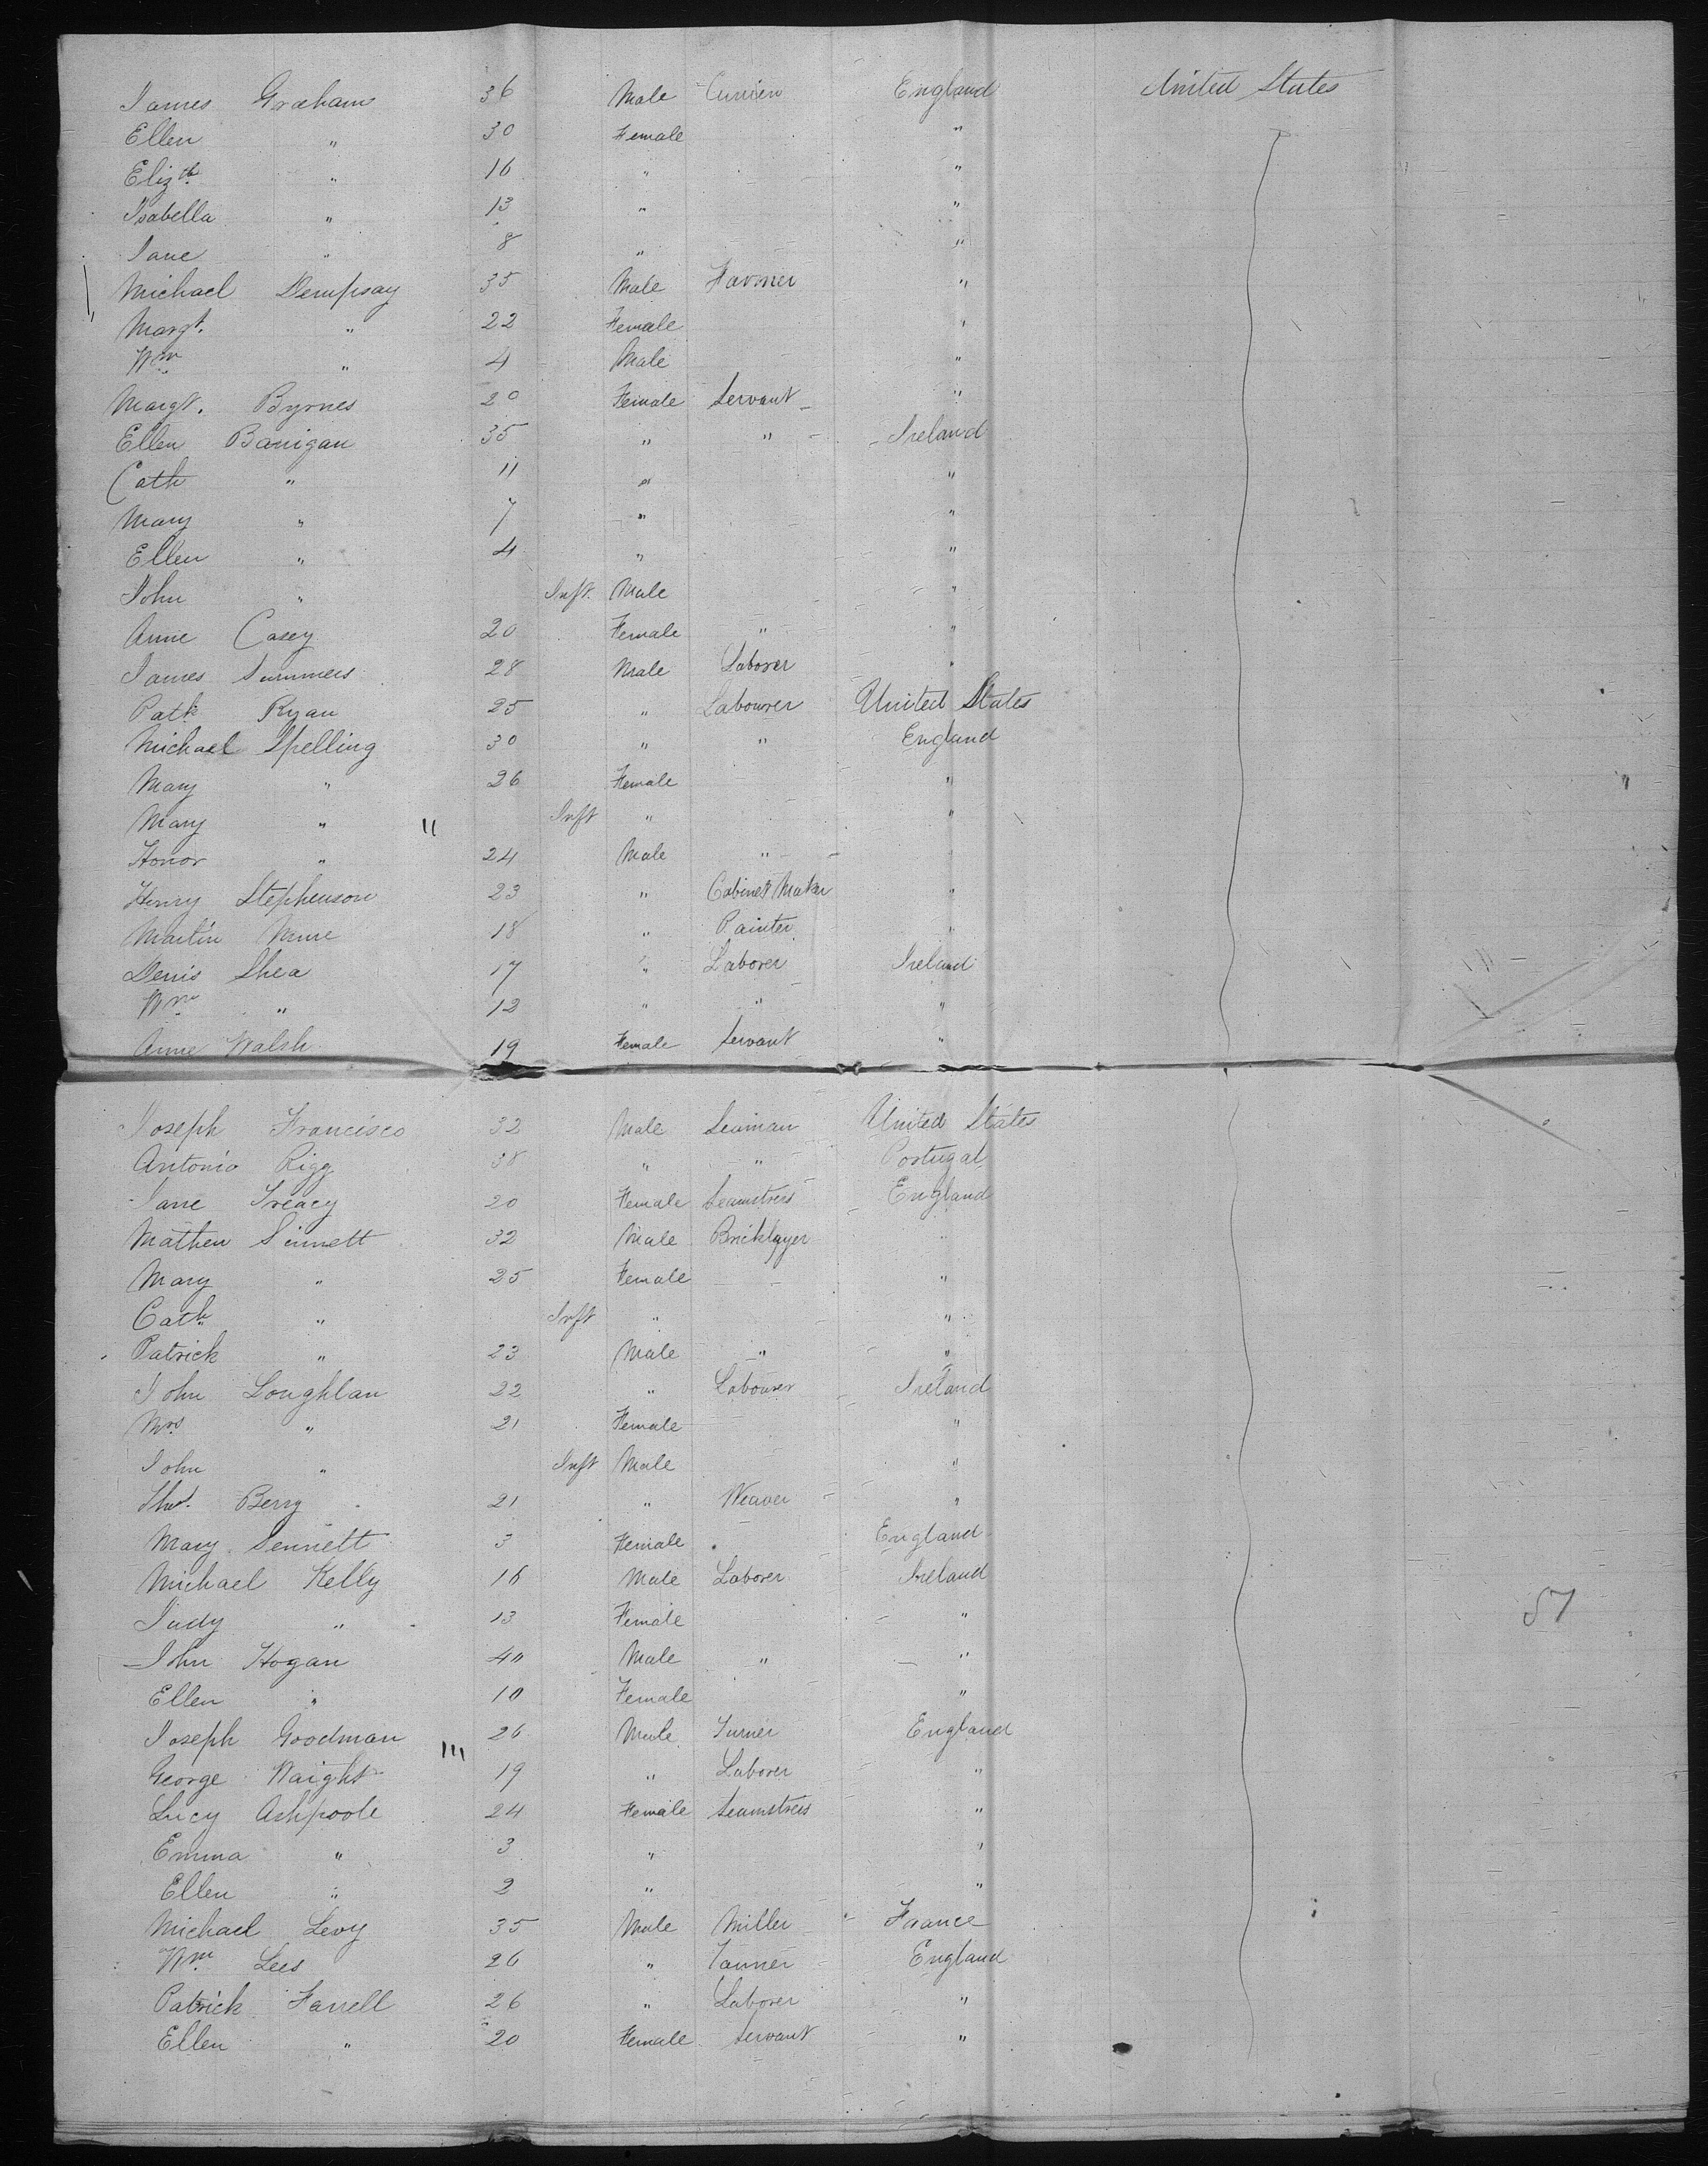 James Graham 36 Male England United States
Ellen " 30 Female "
Elizth " 16 " "
Isabella " 13 " "
Jane " 8 " "
Michael Dempsay 35 Male Farmer "
Margt. " 22 Female "
Wm " 4 Male "
Margt. Byrnes 20 Female Servant "
Ellen Banigan 35 " " Ireland
Cath " 11 " "
Mary " 7 " "
Ellen " 4 " "
John " Inft. Male "
Anne Casey 20 Female " "
James Summers 28 Male Laborer "
Patk Ryan 25 " Labourer United States
Michael Spelling 30 " " England
Mary " 26 Female "
Mary " " Inft " "
Honor " 24 Male " "
Henry Stephenson 23 " Cabinet Maker "
Martin 18 " Painter "
Denis Shea 17 " Laborer Ireland
Wm " 12 " " "
Anne Walsh 19 Female Servant "
Joseph Francisco 32 Male Seaman United States
Antonio Rigg 38 " " Portugal
Jane Treacy 20 Female Seamstress England
Mathew Sinnett 32 Male Bricklayer "
Mary " 25 Female "
Cath " Inft " "
Patrick " 23 Male " "
John Loughlan 22 " Labourer Ireland
Mrs " 21 Female "
John " Inft Male "
Thos. Berry 21 " Weaver "
Mary Sennett 3 Female England
Michael Kelly 16 Male Laborer Ireland
Judy " 13 Female "
57
John Hogan 40 Male " "
Ellen " 10 Female "
Joseph Goodman 26 Male Turner England
George Waight 19 " Laborer "
Lucy Ashpoole 24 Female Seamstress "
Emma " 3 " "
Ellen " 2 " "
Michael Levy 35 Male Miller France
Wm Lees 26 " Tanner England
Patrick Farrell 26 " Laborer "
Ellen " 20 Female Servant "